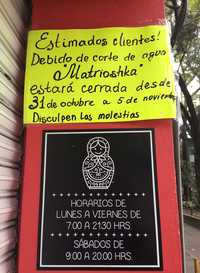 Estimados clientes!
Debido de corte de agua
"Matrioshka"
estará cerrada desde
31 de octubre a 5 de noviembre
Disculpen las molestias
HORARIOS DE
LUNES A VIERNES DE
7:00 A 21:30 HRS.
SÁBADOS DE
9:00 A 20:00 HRS.